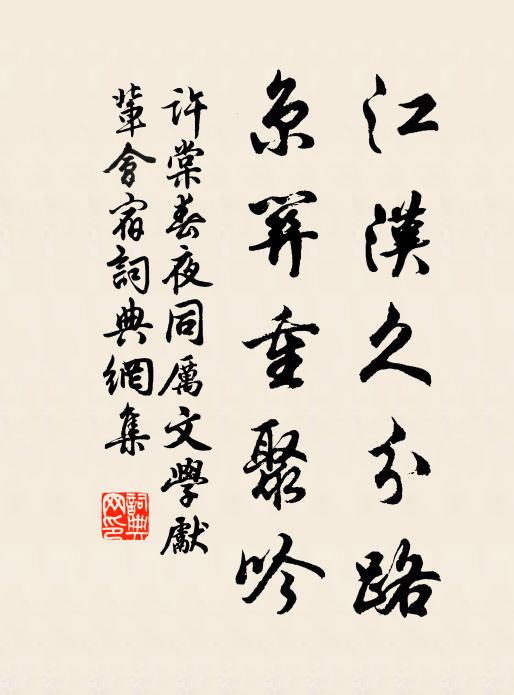 江漢久分路
京關重聚吟
許棠春夜同厲文學獻
輩會宿詞典網集
詞典网印